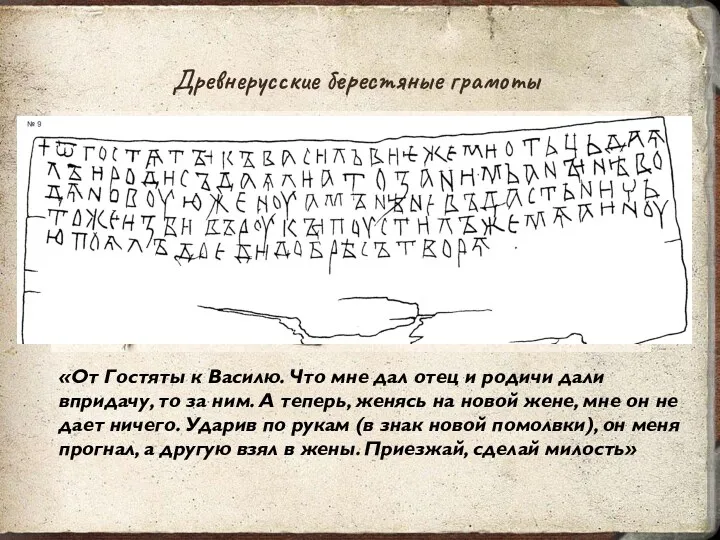 Древнерусские берестяные грамоты
№ 9
+ ѿ гостѧтꙑкъвасильвиѥжемиотьцьдаꙗ
лъиродисъдаꙗлиатозанимьанꙑнѣво
дѧновоуюженоуамънѣневъдастьничь
тожеизбивъроукꙑпоустилъжемѧаиноу
юпоꙗлъдоедидобрѣсътворѧ
«От Гостяты к Василю. Что мне дал отец и родичи дали
впридачу, то за ним. А теперь, женясь на новой жене, мне он не
дает ничего. Ударив по рукам (в знак новой помолвки), он меня
прогнал, а другую взял в жены. Приезжай, сделай милость»